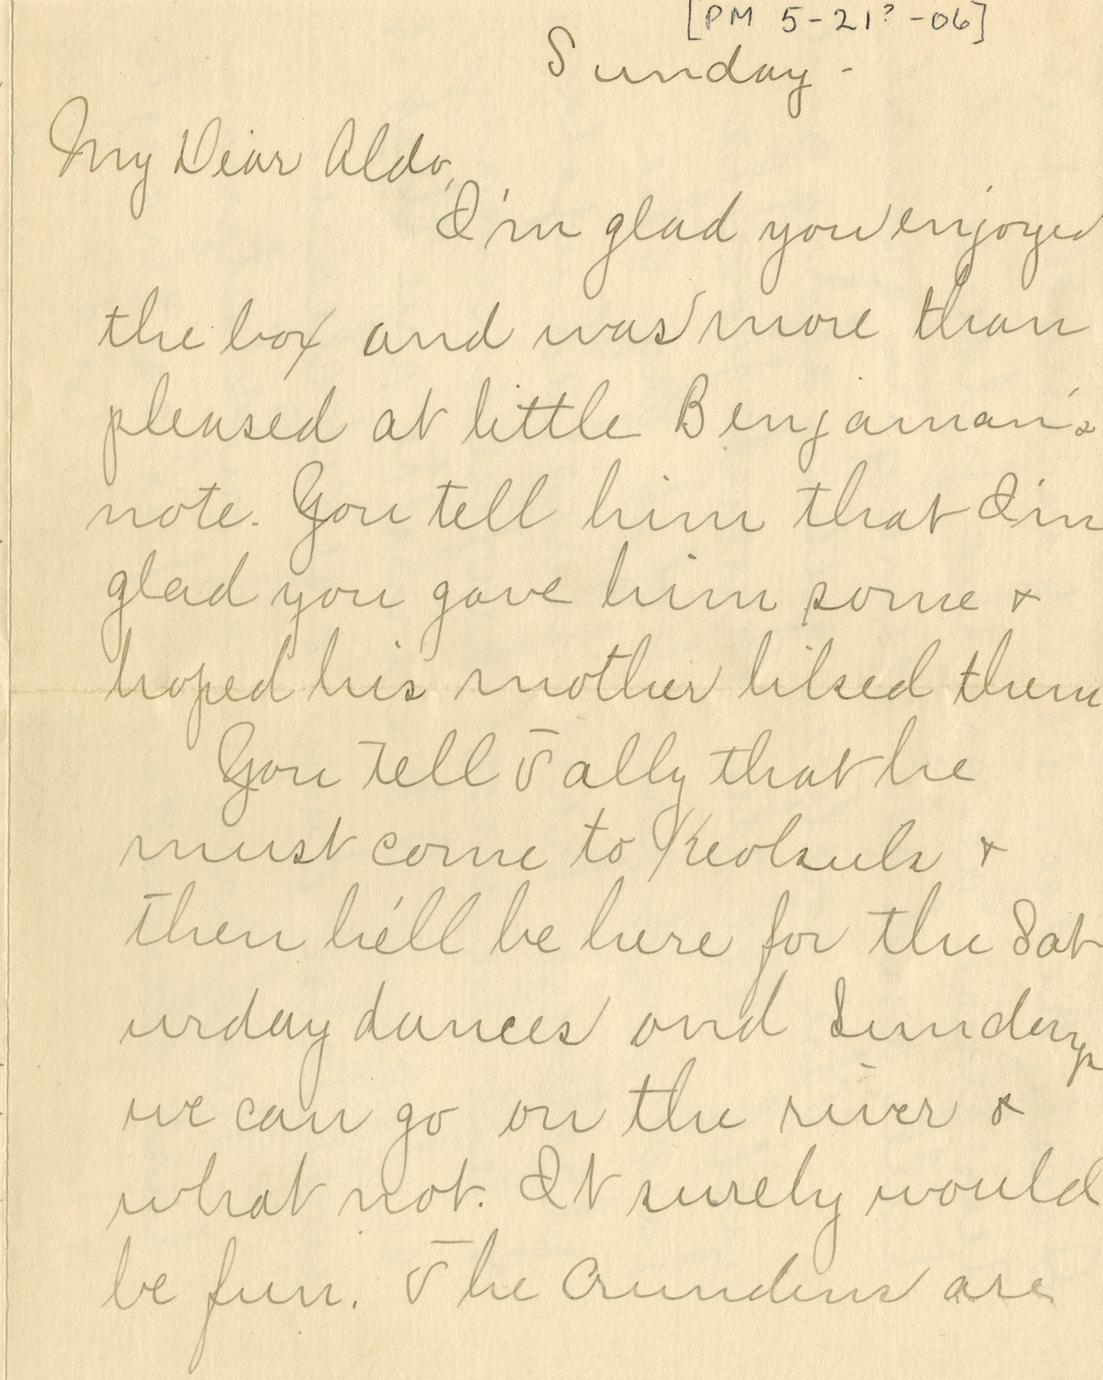 [PM 5-21? -06]
Sunday -
My Dear Aldo,
I'm glad you enjoyed
the box and was more than
pleased at little Benjaman's
note. You tell him that I'm
glad you gave him some &
hoped his mother liked them
You tell Tally that he
must come to Keokuk &
then he'll be here for the Sat
urday dances and Sundays
we can go on the river &
what not. It surely would
be fun. The Crundens are